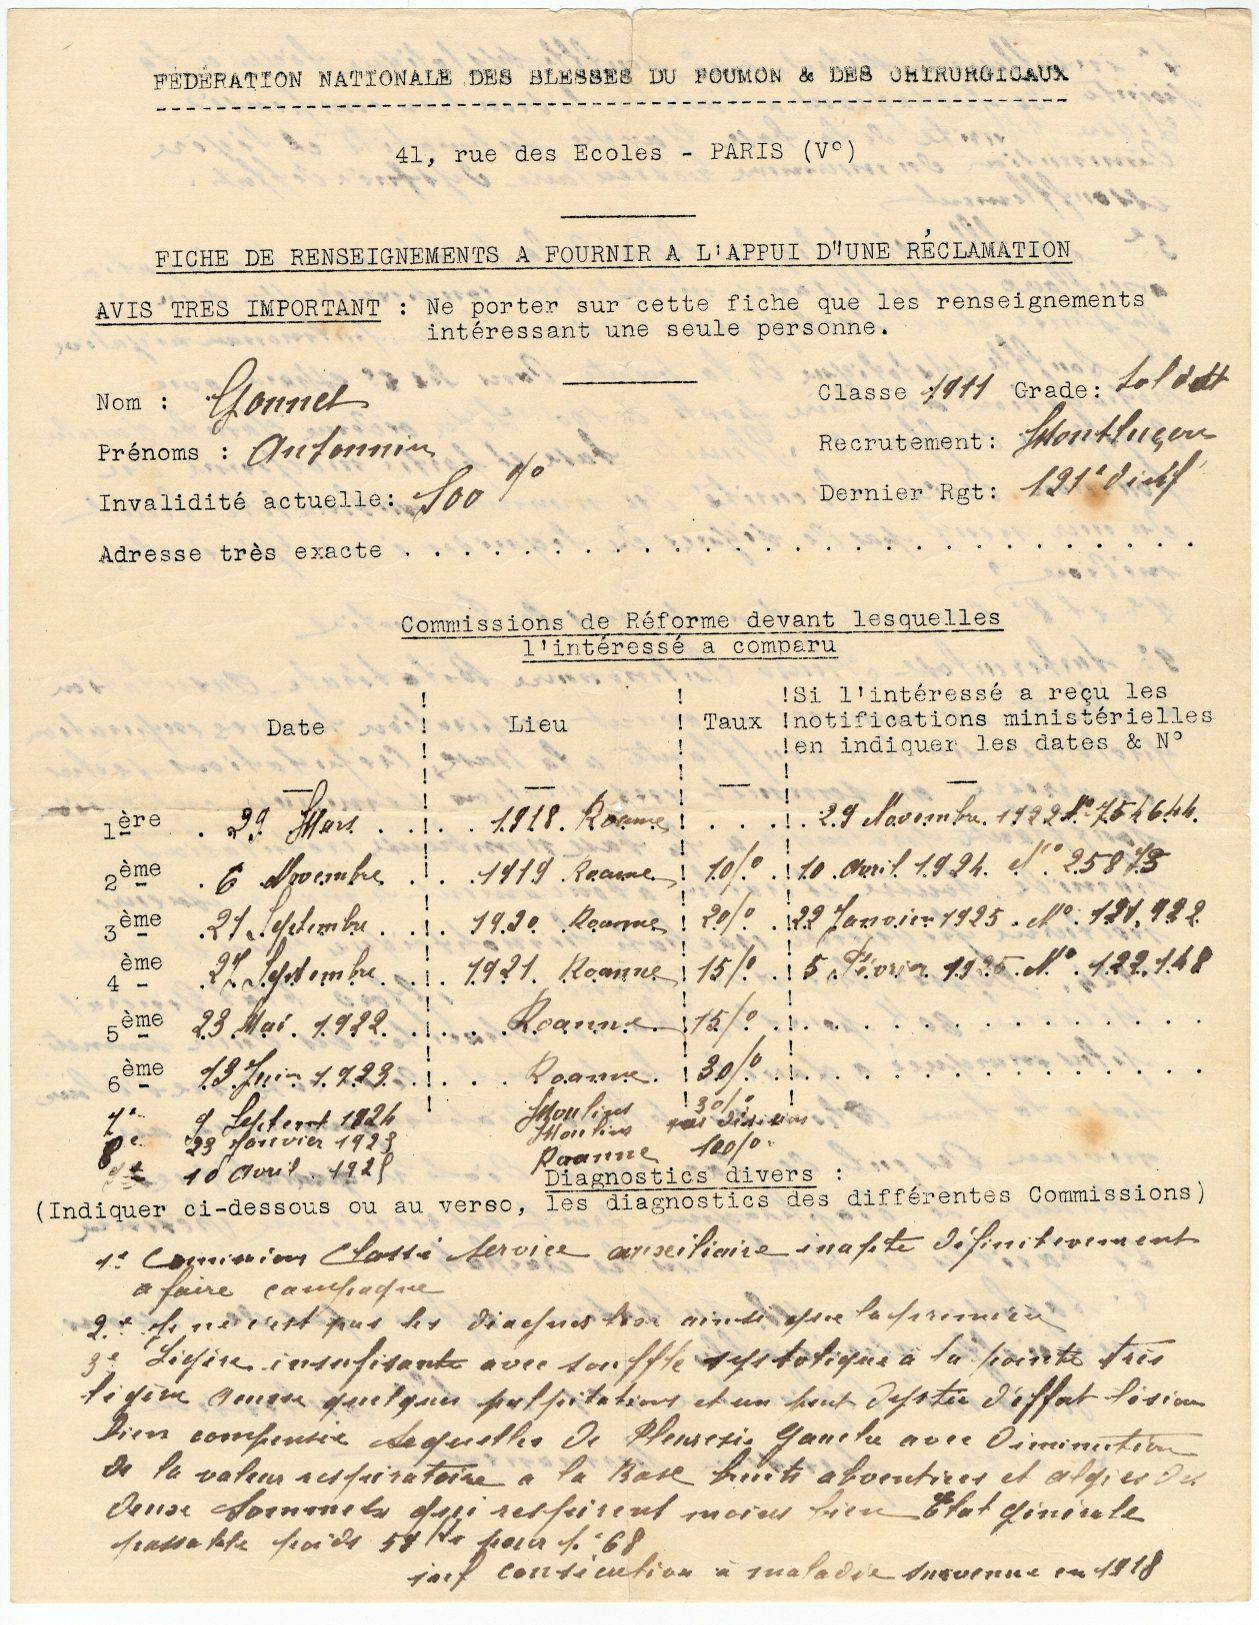 FÉDÉRATION NATIONALE DES BLESSES DU POUMON & DES CHIRURGICAUX
41, rue des Ecoles - PARIS (V°)
FICHE DE RENSEIGNEMENTS A FOURNIR A L'APPUI D'UNE RÉCLAMATION
AVIS TRES IMPORTANT : Ne porter sur cette fiche que les renseignements
intéressant une seule personne.
Nom : Gonnet
Classe 1911 Grade: soldat
Prénoms : Antonnin
Recrutement: Montluçon
Invalidité actuelle: 100 %
Dernier Rgt: 121e d'inf
Adresse très exacte . . . . . . . . . . . . . . . . . . . . . . .
Commissions de Réforme devant lesquelles
l'intéressé a comparu
Date Lieu Taux Si l'intéressé a reçu les
notifications ministérielles
en indiquer les dates & N°
1ère 29 Mars 1918 Roanne 29 Novembre 1922 N° 754644
2ème 6 Novembre 1919 Roanne 10% 10 Avril 1924 N° 25873
3ème 21 Septembre 1920 Roanne 20% 22 Janvier 1925 N° 121,922
4ème 27 Septembre 1921 Roanne 15% 5 Février 1925 N° 122.148
5ème 23 Mai 1922 Roanne 15%
6ème 13 Juin 1923 Roanne 30%
7e 9 Septem 1924 Moulins 30%
8e 23 Janvier 1925 Moulins pas décision
9e 10 Avril 1925 Roanne 100%
Diagnostics divers :
(Indiquer ci-dessous ou au verso, les diagnostics des différentes Commissions)
1e Commission Classé Service auxiliaire inapte définitivement
a faire campagne
2e je ne c'est pas les diagnostic ainsi que la premiere
3e Légère insufisante avec souffle systolique à la pointe très
légère accuse quelques palpitations et un peut d'effort lésion
bien compensée sequelles de Pleuresie Gauche avec diminution
de la valeur respiratoire a la Base bruits adventices et algies des
deux sommets qui respirent moins bien Etat générale
passable poids 58 ks pour 1.68
inf consécution à maladie survenue en 1918